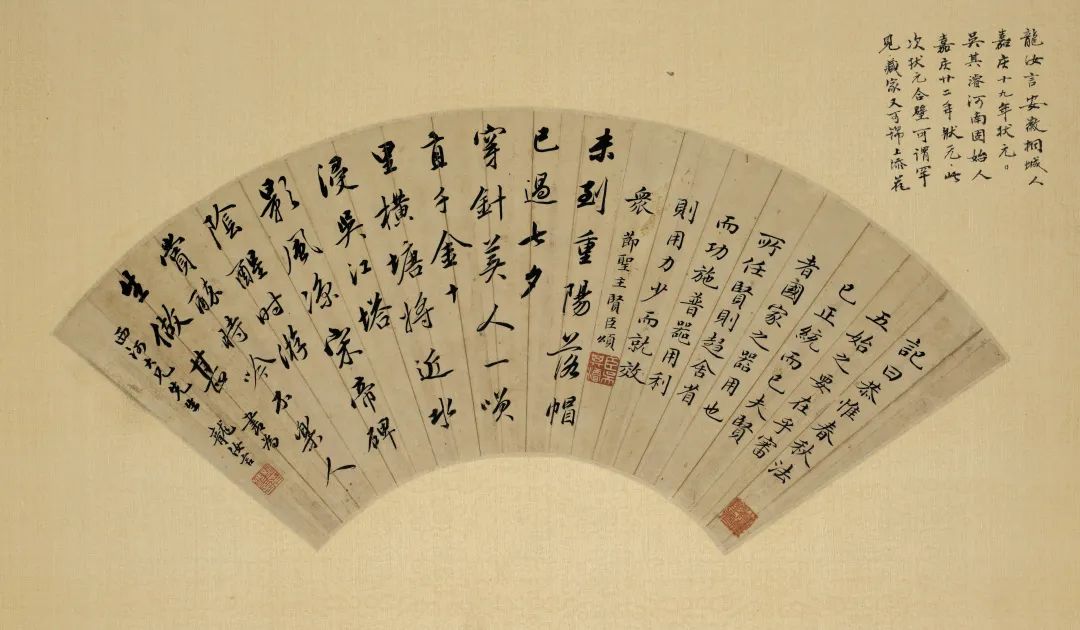 龍汝言安徽桐城人
嘉庆十九年状元。
吳其濬河南固始人
嘉庆廿二年狀元此
次状元合璧可谓罕
見藏家又可锦上添花
記曰恭惟春秋法
五始之要在乎審
己正統而已夫賢
者國家之器用也
所任賢則趨舍省
而功施普器用利
則用力少而就效
衆
節聖主賢臣頌
未到重陽落帽
已過七夕
穿針美人一笑
直千金十
里橫塘將近水
浸吳江塔
影風涼宋帝碑
陰醒時游
賞醉時吟不樂人
生做甚
書為
西河大兄先生
龍汝言